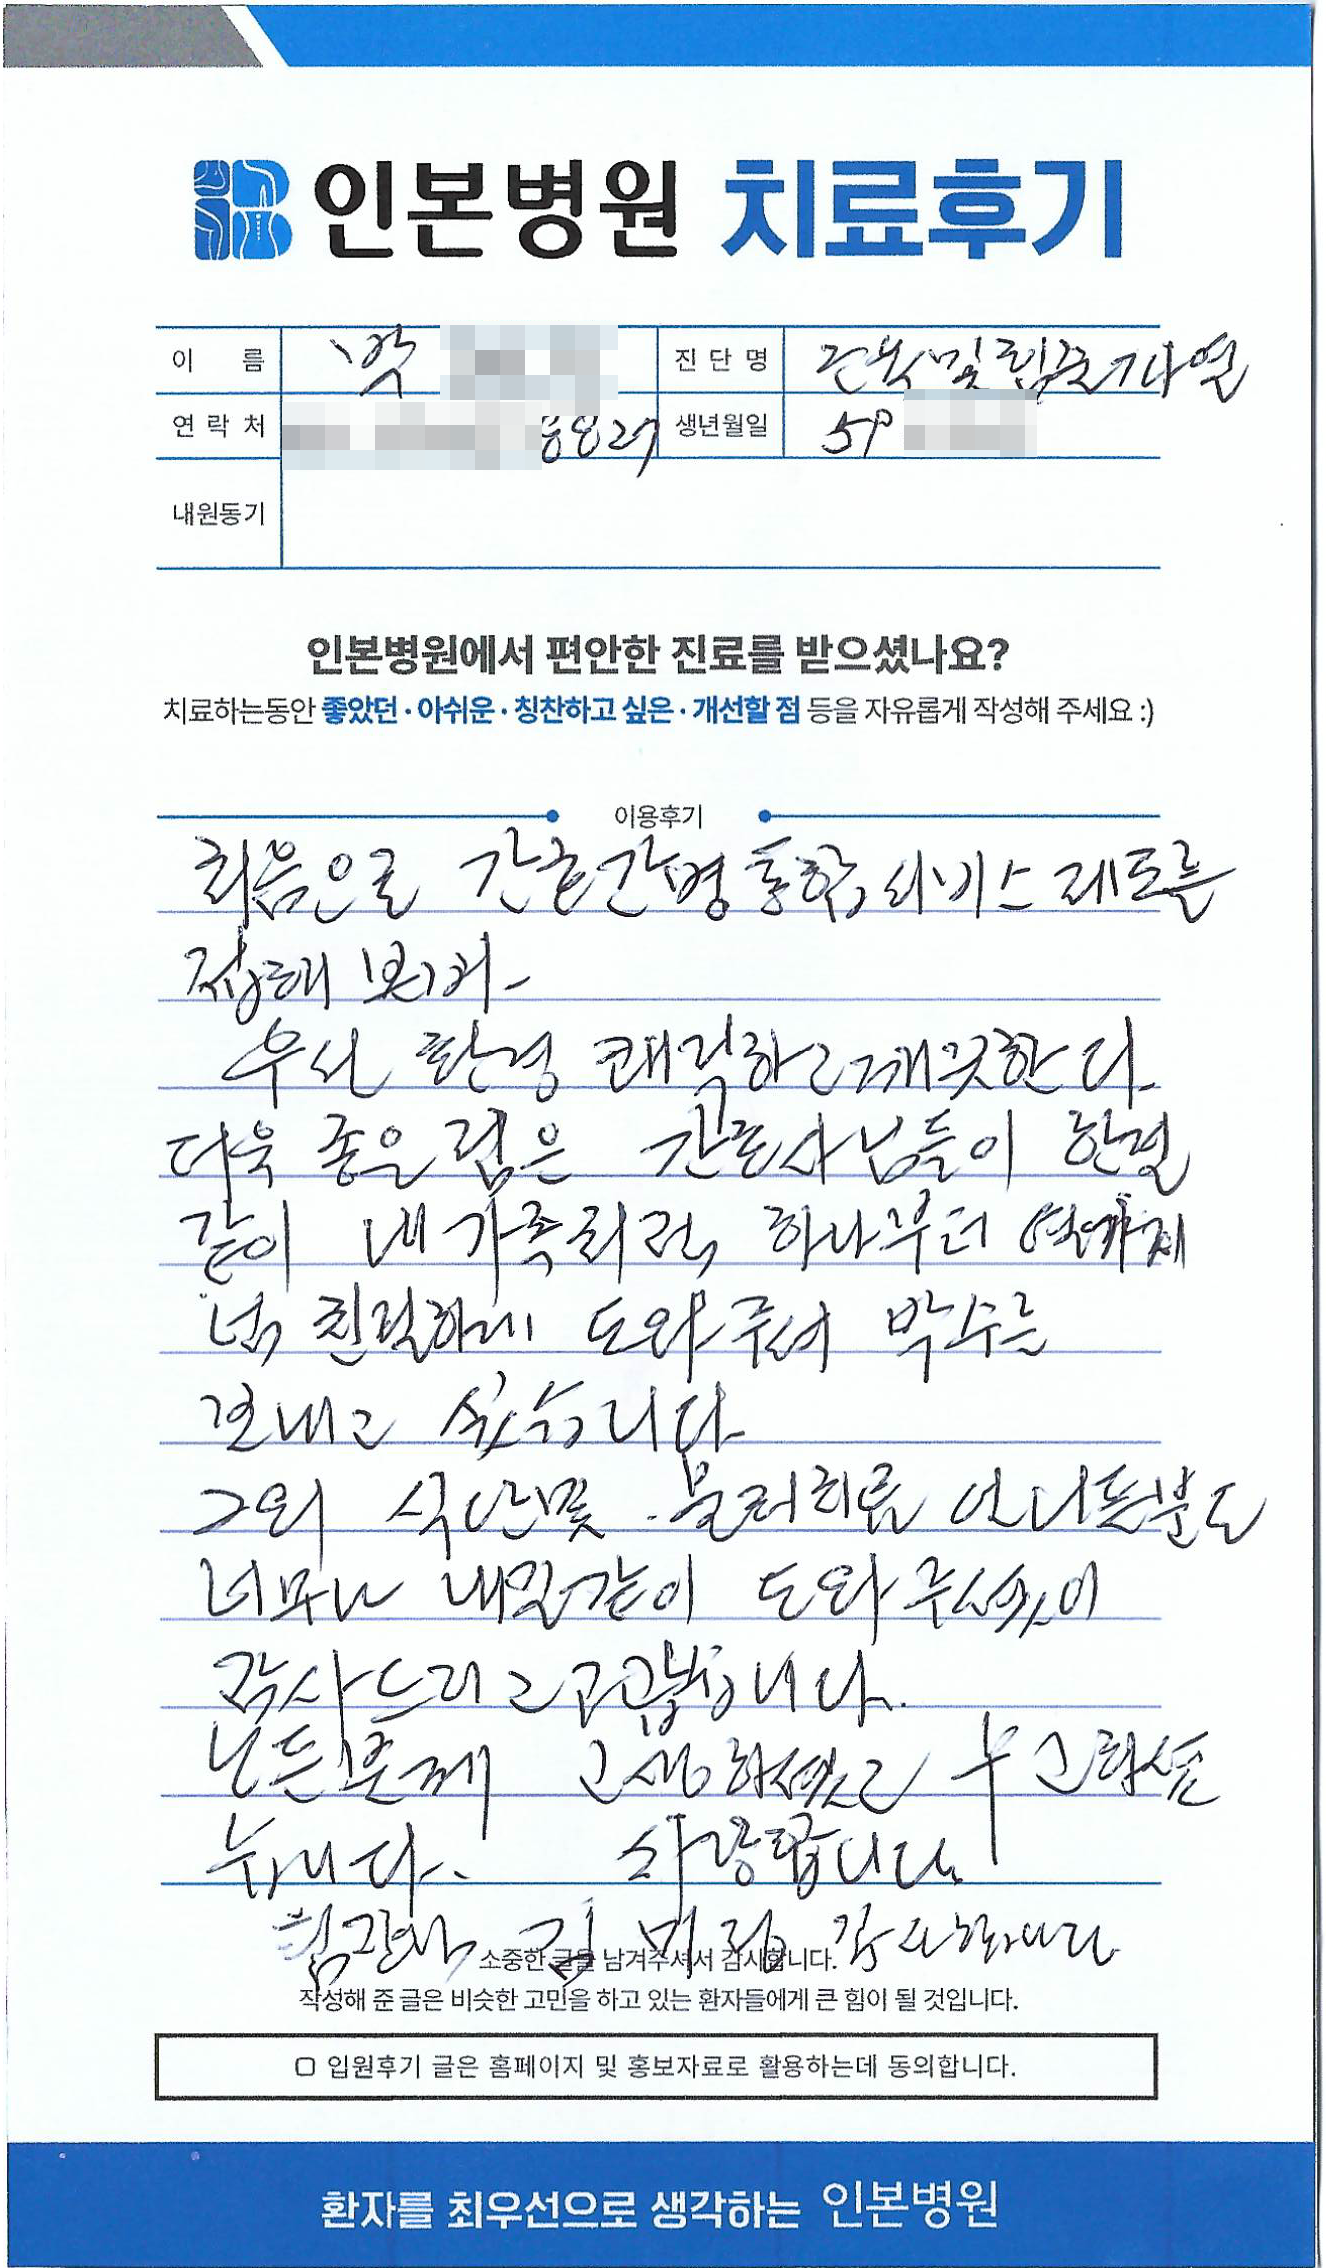 인본병원 치료후기
이 름 박 진단명
연락처 8827 생년월일 59
내원동기
인본병원에서 편안한 진료를 받으셨나요?
치료하는동안 좋았던 · 아쉬운 · 칭찬하고 싶은 · 개선할 점 등을 자유롭게 작성해 주세요 :)
이용후기
처음으로 간호간병통합서비스 제도를
접해 보며-
우선 환경 쾌적하고 깨끗한다.
더욱 좋은 점은 간호사님들이 한결
같이 내 가족처럼, 하나부터 열까지
넘 친절하게 도와주셔 박수를
보내고 싶습니다.
그외 식단및 물리치료 어너든분도
너무나 내일같이 도와주셨어
감사드리고 고맙습니다.
모든분께 고생하셨고 수고하셨
습니다. 사랑합니다.
김 미정 감사합니다
소중한 글을 남겨주셔서 감사합니다.
작성해 준 글은 비슷한 고민을 하고 있는 환자들에게 큰 힘이 될 것입니다.
□ 입원후기 글은 홈페이지 및 홍보자료로 활용하는데 동의합니다.
환자를 최우선으로 생각하는 인본병원